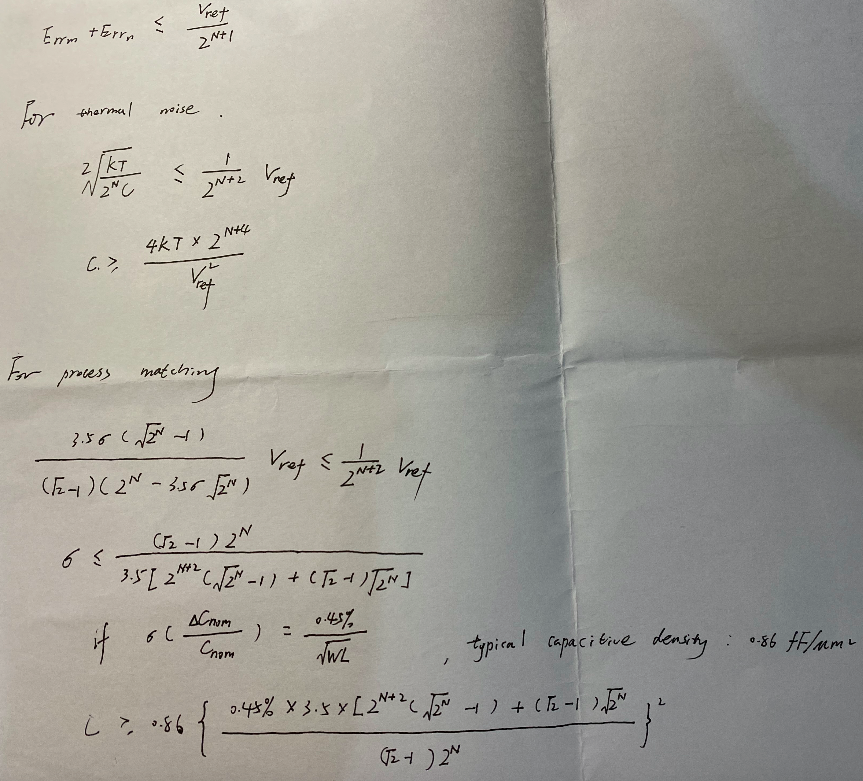 Errm + Errn ≤ Vref / 2^(N+1)
For thermal noise.
2√(kT / 2^N C) ≤ 1 / 2^(N+2) Vref
C ≥ 4kT × 2^(N+4) / Vref^2
For process matching
3.5σ(√2^N - 1) / (√2-1)(2^N - 3.5σ√2^N) Vref ≤ 1 / 2^(N+2) Vref
σ ≤ (√2-1)2^N / 3.5[2^(N+2)(√2^N - 1) + (√2-1)√2^N]
if σ(ΔCnom / Cnom) = 0.45% / √WL , typical capacitive density : 0.86 fF/μm²
C ≥ 0.86 { 0.45% × 3.5 × [2^(N+2)(√2^N - 1) + (√2-1)√2^N] / (√2-1)2^N }^2